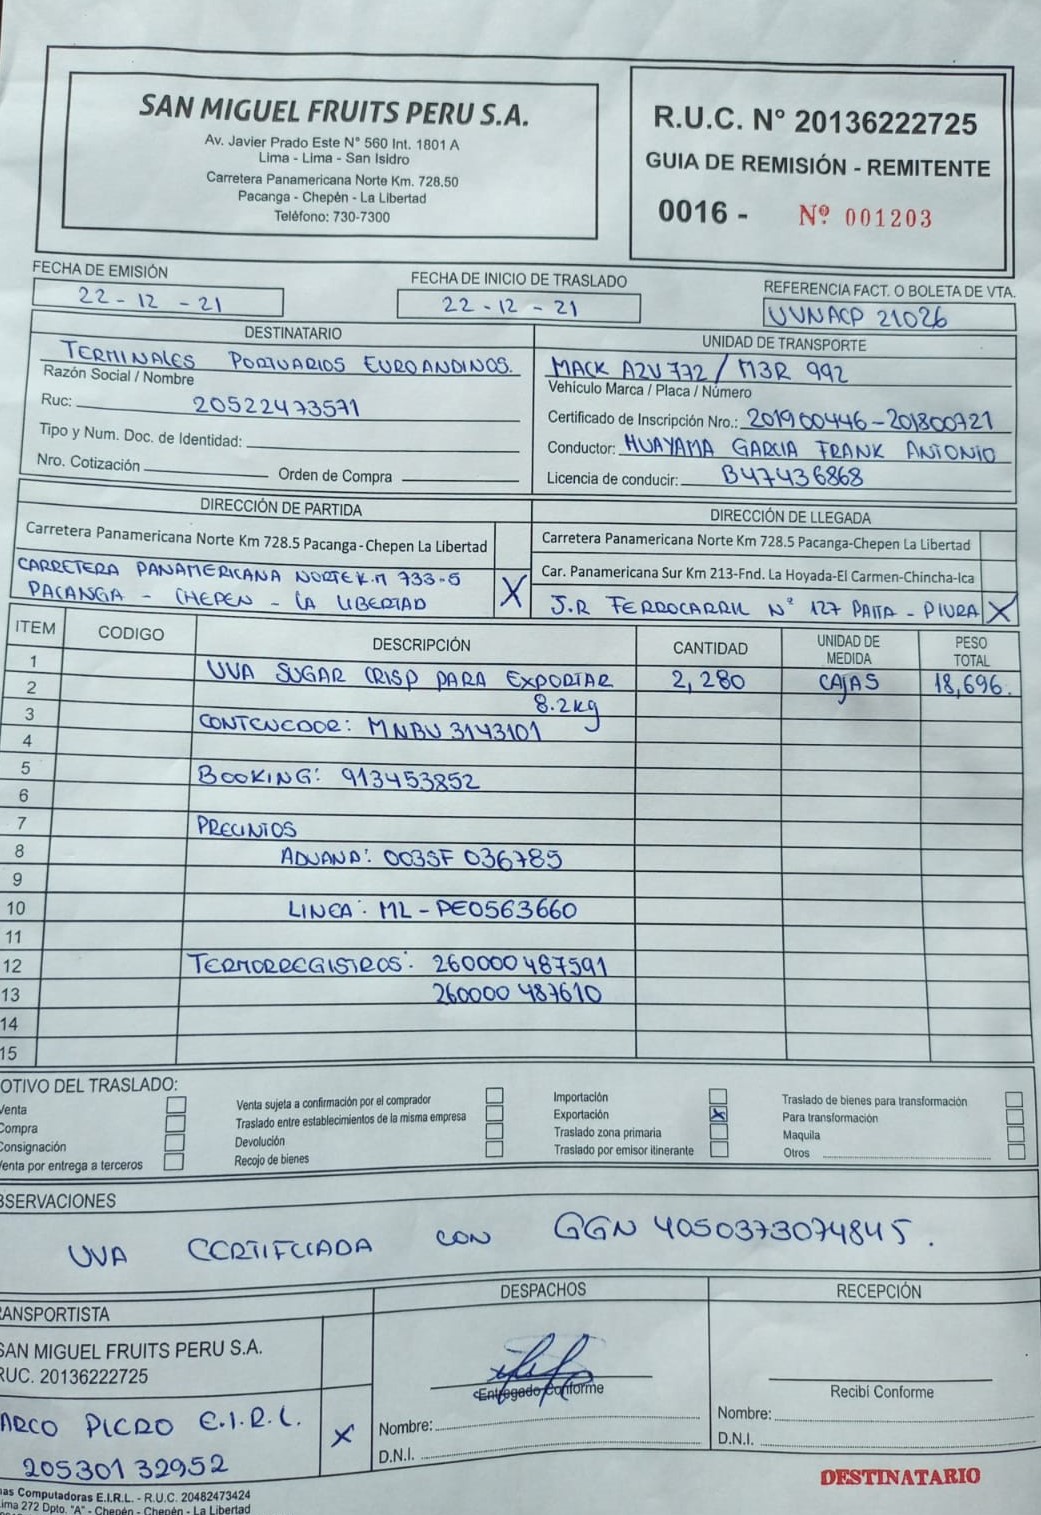 SAN MIGUEL FRUITS PERU S.A.
Av. Javier Prado Este N° 560 Int. 1801 A
Lima - Lima - San Isidro
Carretera Panamericana Norte Km. 728.50
Pacanga - Chepén - La Libertad
Teléfono: 730-7300
R.U.C. N° 20136222725
GUIA DE REMISIÓN - REMITENTE
0016 - Nº 001203
FECHA DE EMISIÓN
22 - 12 - 21
FECHA DE INICIO DE TRASLADO
22 - 12 - 21
REFERENCIA FACT. O BOLETA DE VTA.
UVNACP 21026
DESTINATARIO
TERMINALES PORTUARIOS EUROANDINOS.
Razón Social / Nombre
Ruc: 20522473571
Tipo y Num. Doc. de Identidad:
Nro. Cotización Orden de Compra
UNIDAD DE TRANSPORTE
MACK A2U 772 / M3R 992
Vehículo Marca / Placa / Número
Certificado de Inscripción Nro.: 201900446-201800721
Conductor: HUAYAMA GARCIA FRANK ANTONIO
Licencia de conducir: B47436868
DIRECCIÓN DE PARTIDA
Carretera Panamericana Norte Km 728.5 Pacanga-Chepen La Libertad
CARRETERA PANAMERICANA NORTE K.M 733-5
PACANGA - CHEPEN - LA LIBERTAD X
DIRECCIÓN DE LLEGADA
Carretera Panamericana Norte Km 728.5 Pacanga-Chepen La Libertad
Car. Panamericana Sur Km 213-Fnd. La Hoyada-El Carmen-Chincha-Ica
J.R FERROCARRIL N° 127 PAITA - PIURA X
ITEM CODIGO DESCRIPCIÓN CANTIDAD UNIDAD DE MEDIDA PESO TOTAL
1 UVA SUGAR CRISP PARA EXPORTAR 2,280 CAJAS 18,696.
2 8.2kg
3 CONTENEDOR: MNBU 3143101
4
5 BOOKING: 913453852
6
7 PRECINTOS
8 ADUANA: 003SF 036785
9
10 LINEA: ML - PE0563660
11
12 TERMORREGISTROS: 260000487591
13 260000 487610
14
15
OTIVO DEL TRASLADO:
Venta
Compra
Consignación
Venta por entrega a terceros
Venta sujeta a confirmación por el comprador
Traslado entre establecimientos de la misma empresa
Devolución
Recojo de bienes
Importación
Exportación X
Traslado zona primaria
Traslado por emisor itinerante
Traslado de bienes para transformación
Para transformación
Maquila
Otros
BSERVACIONES
UVA CERTIFCIADA CON GGN 4050373074845.
RANSPORTISTA
SAN MIGUEL FRUITS PERU S.A.
RUC. 20136222725
ARCO PICRO E.I.R.L. X
20530132952
DESPACHOS
Entregado Conforme
Nombre:
D.N.I.
RECEPCIÓN
Recibí Conforme
Nombre:
D.N.I.
DESTINATARIO
nas Computadoras E.I.R.L. - R.U.C. 20482473424
ima 272 Dpto. "A" - Chepén - Chepén - La Libertad